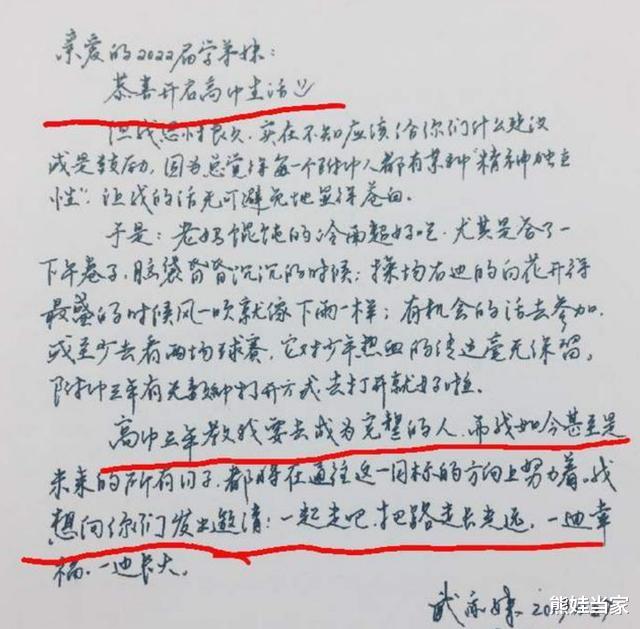 亲爱的2022届学弟妹：
恭喜开启高中生活
但我思忖良久，实在不知应该给你们什么建议
或是鼓励，因为总觉得每一个附中人都有某种“精神独立
性”，让我的话无可避免地显得苍白。
于是：老妈馄饨的冷面超好吃，尤其是答了一
下午卷子，脑袋昏昏沉沉的时候；操场右边的白花开得
最盛的时候风一吹就像下雨一样；有机会的话去参加，
或至少去看两场球赛，它对少年热血的传达毫无保留。
附中三年有无数种打开方式，去打开就好啦。
高中三年教我要去成为完整的人，而我如今甚至是
未来的所有日子，都将在通往这一目标的方向上努力着。我
想向你们发出邀请：一起走吧，把路走长走远，一边幸
福，一边长大。
武亦姝
熊娃当家